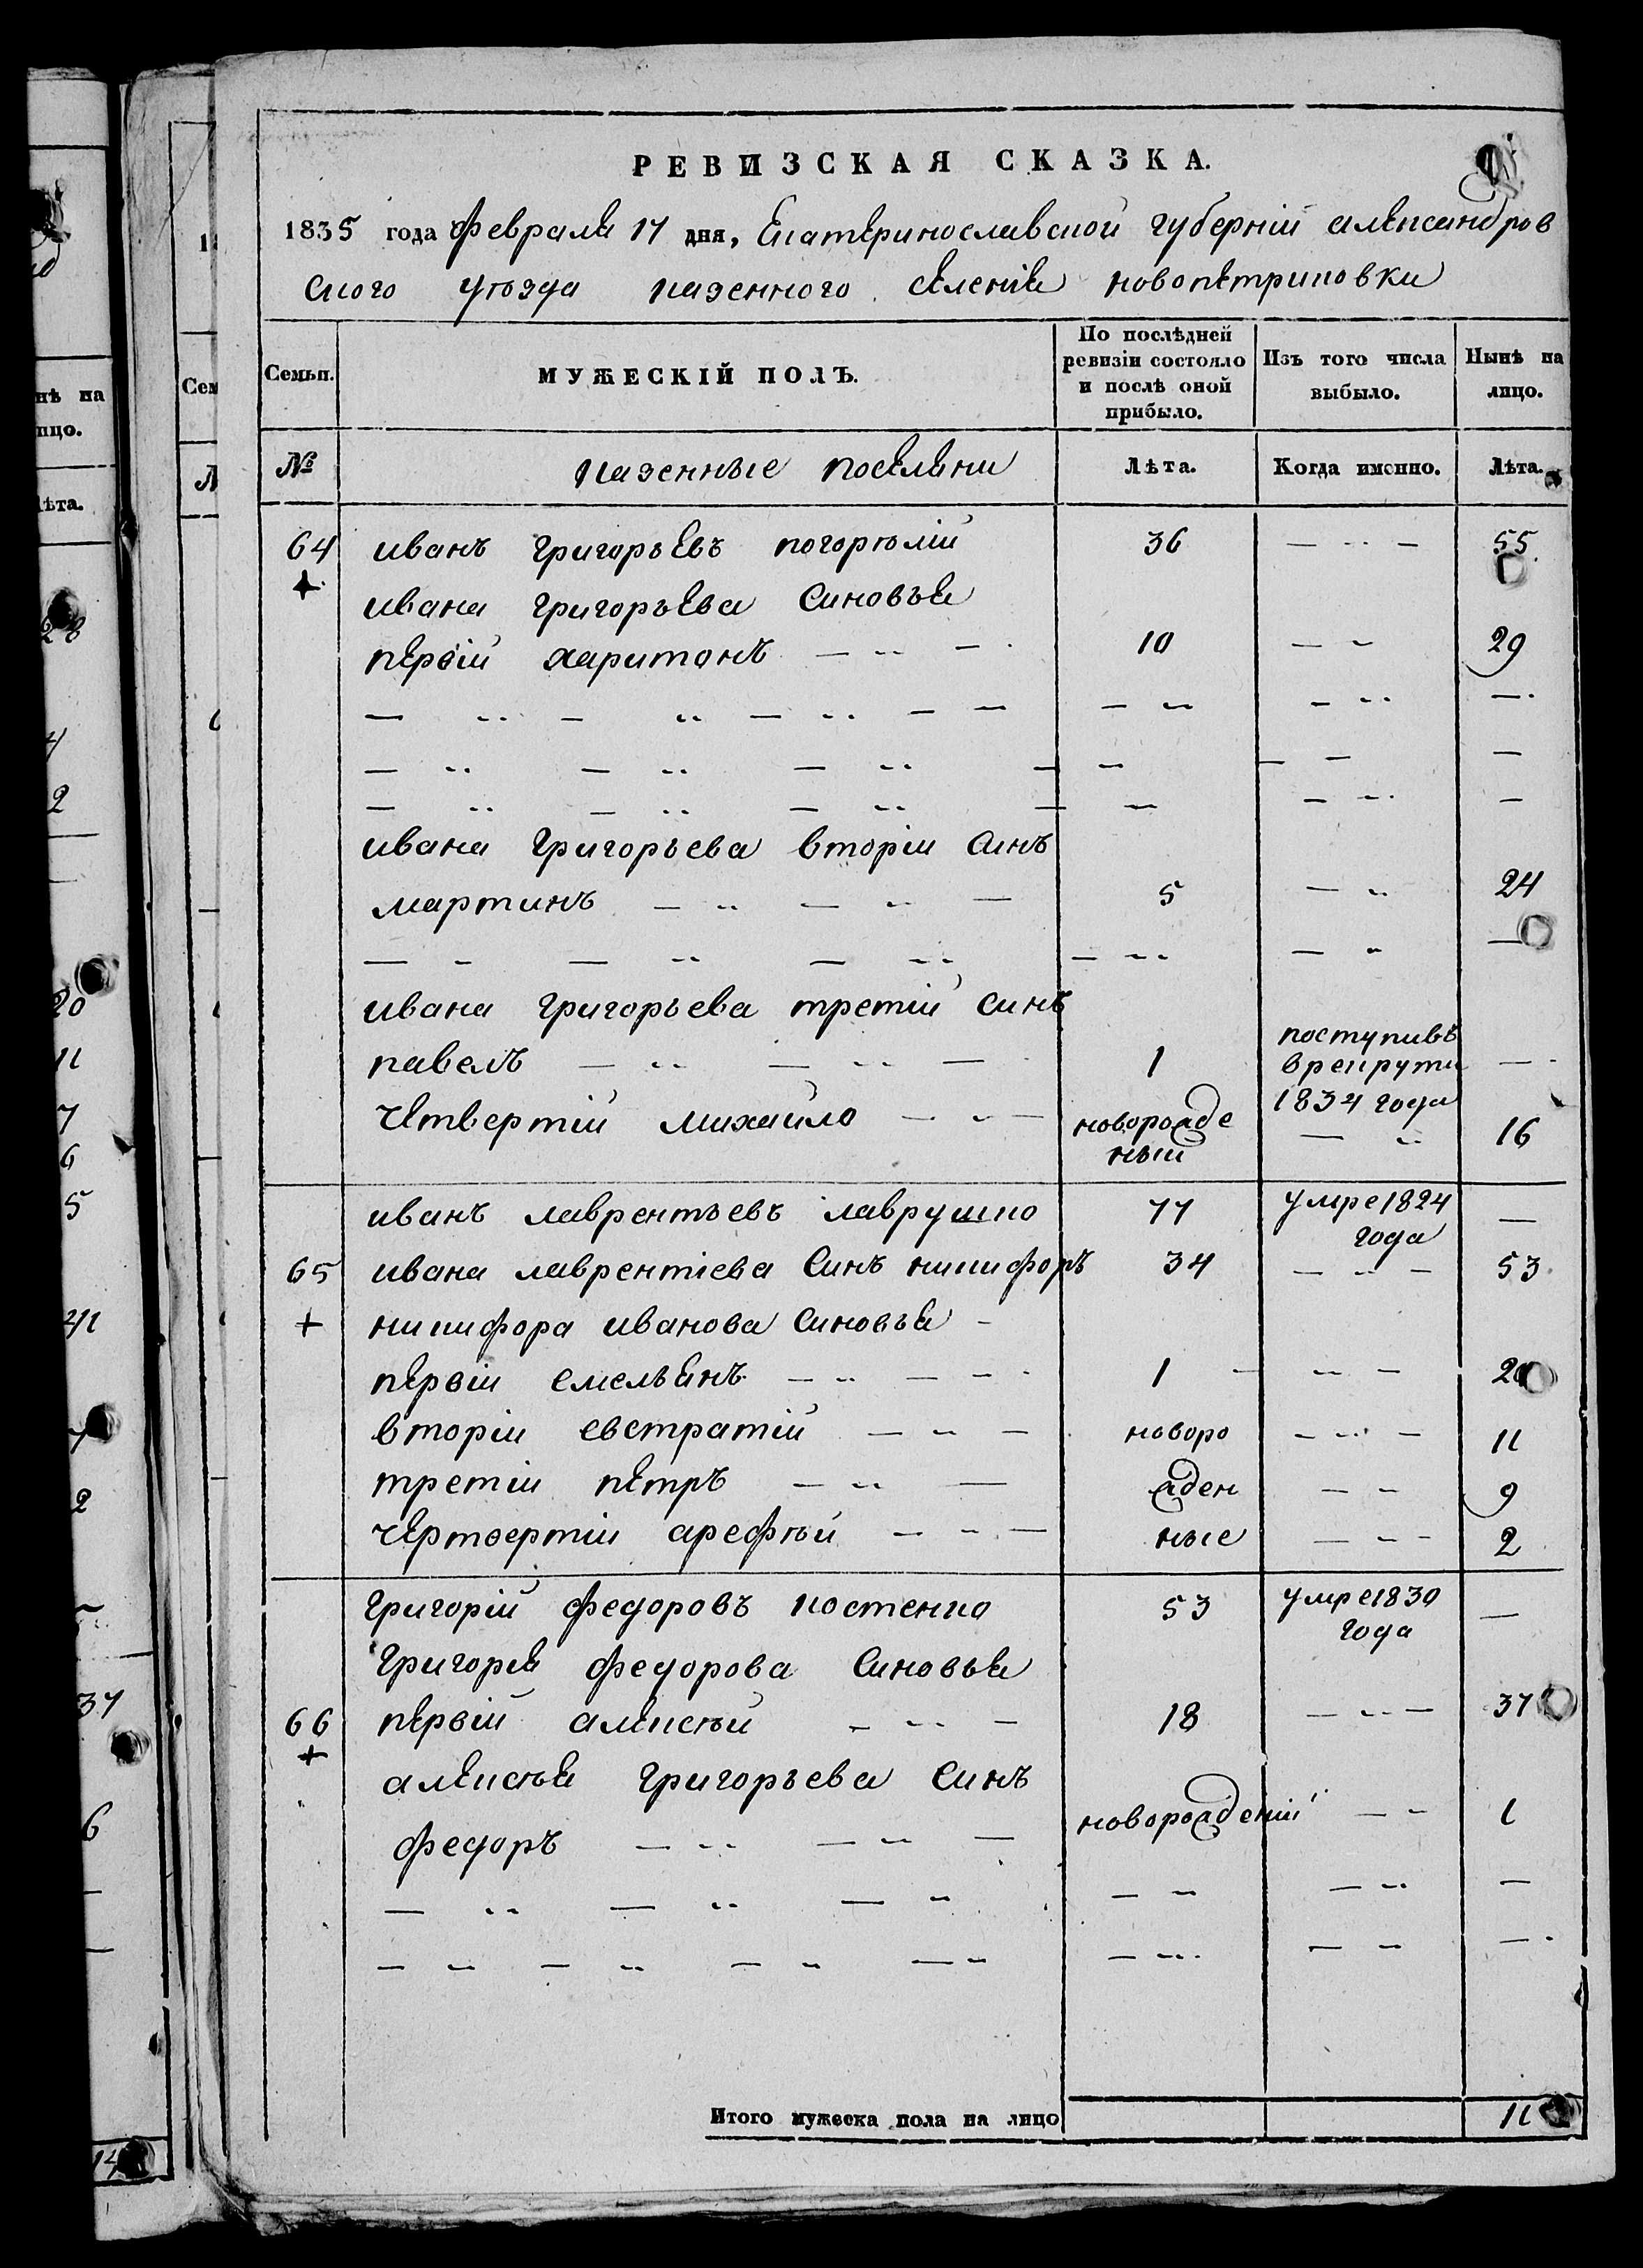 РЕВИЗСКАЯ СКАЗКА.
1835 года Февраля 17 дня, Екатеринославской губерніи александров
ского уѣзда казенного селенія новопетриковки
Семьи.
МУЖЕСКІЙ ПОЛЪ.
По послѣдней ревизіи состояло и послѣ оной прибыло.
Изъ того числа выбыло.
Нынѣ на лицо.
№ казенные поселяни Лѣта. Когда именно. Лѣта.
64 иванъ григорьевъ погорѣлій 36 55
ивана григорьева синовья
первій харитонъ 10 29
ивана григорьева вторій синъ
мартинъ 5 24
ивана григорьева третій синъ
павелъ 1 поступивъ в рекрути 1834 года
Четвертій михайло новорожденый 16
иванъ лаврентьевъ лаврушко 77 умре 1824 года
65 ивана лаврентіева синъ никифоръ 34 53
никифора иванова синовья
первій емельянъ 1 20
вторій евстратій новоро 11
третій петръ жден 9
чертвертій арефѣй ные 2
Григорій федоровъ костенко 53 умре 1830 года
Григорія федорова синовья
66 первій алексѣй 18 37
алексѣя григорьева синъ
федоръ новорожденій 1
Итого мужеска пола на лицо 11